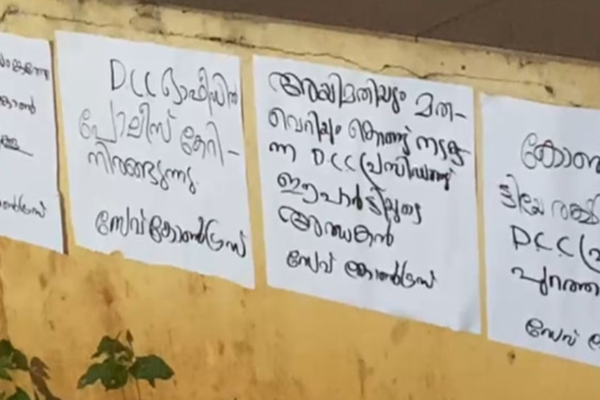 കോൺ
DCC ഓഫീസിൽ
പോലീസ് കേറി-
നിരങ്ങുന്നു.
സേവ് കോൺഗ്രസ്
അഴിമതിയും മത-
വെറിയും കൊണ്ട് നടക്കു
ന്ന DCC പ്രസിഡണ്ട്
ഈ പാർട്ടിയുടെ
അന്ധകൻ
സേവ് കോൺഗ്രസ്
കോൺ
ട്ടിയെ രക്ഷി
DCC പ്ര
പുറത്താ
സേവ്